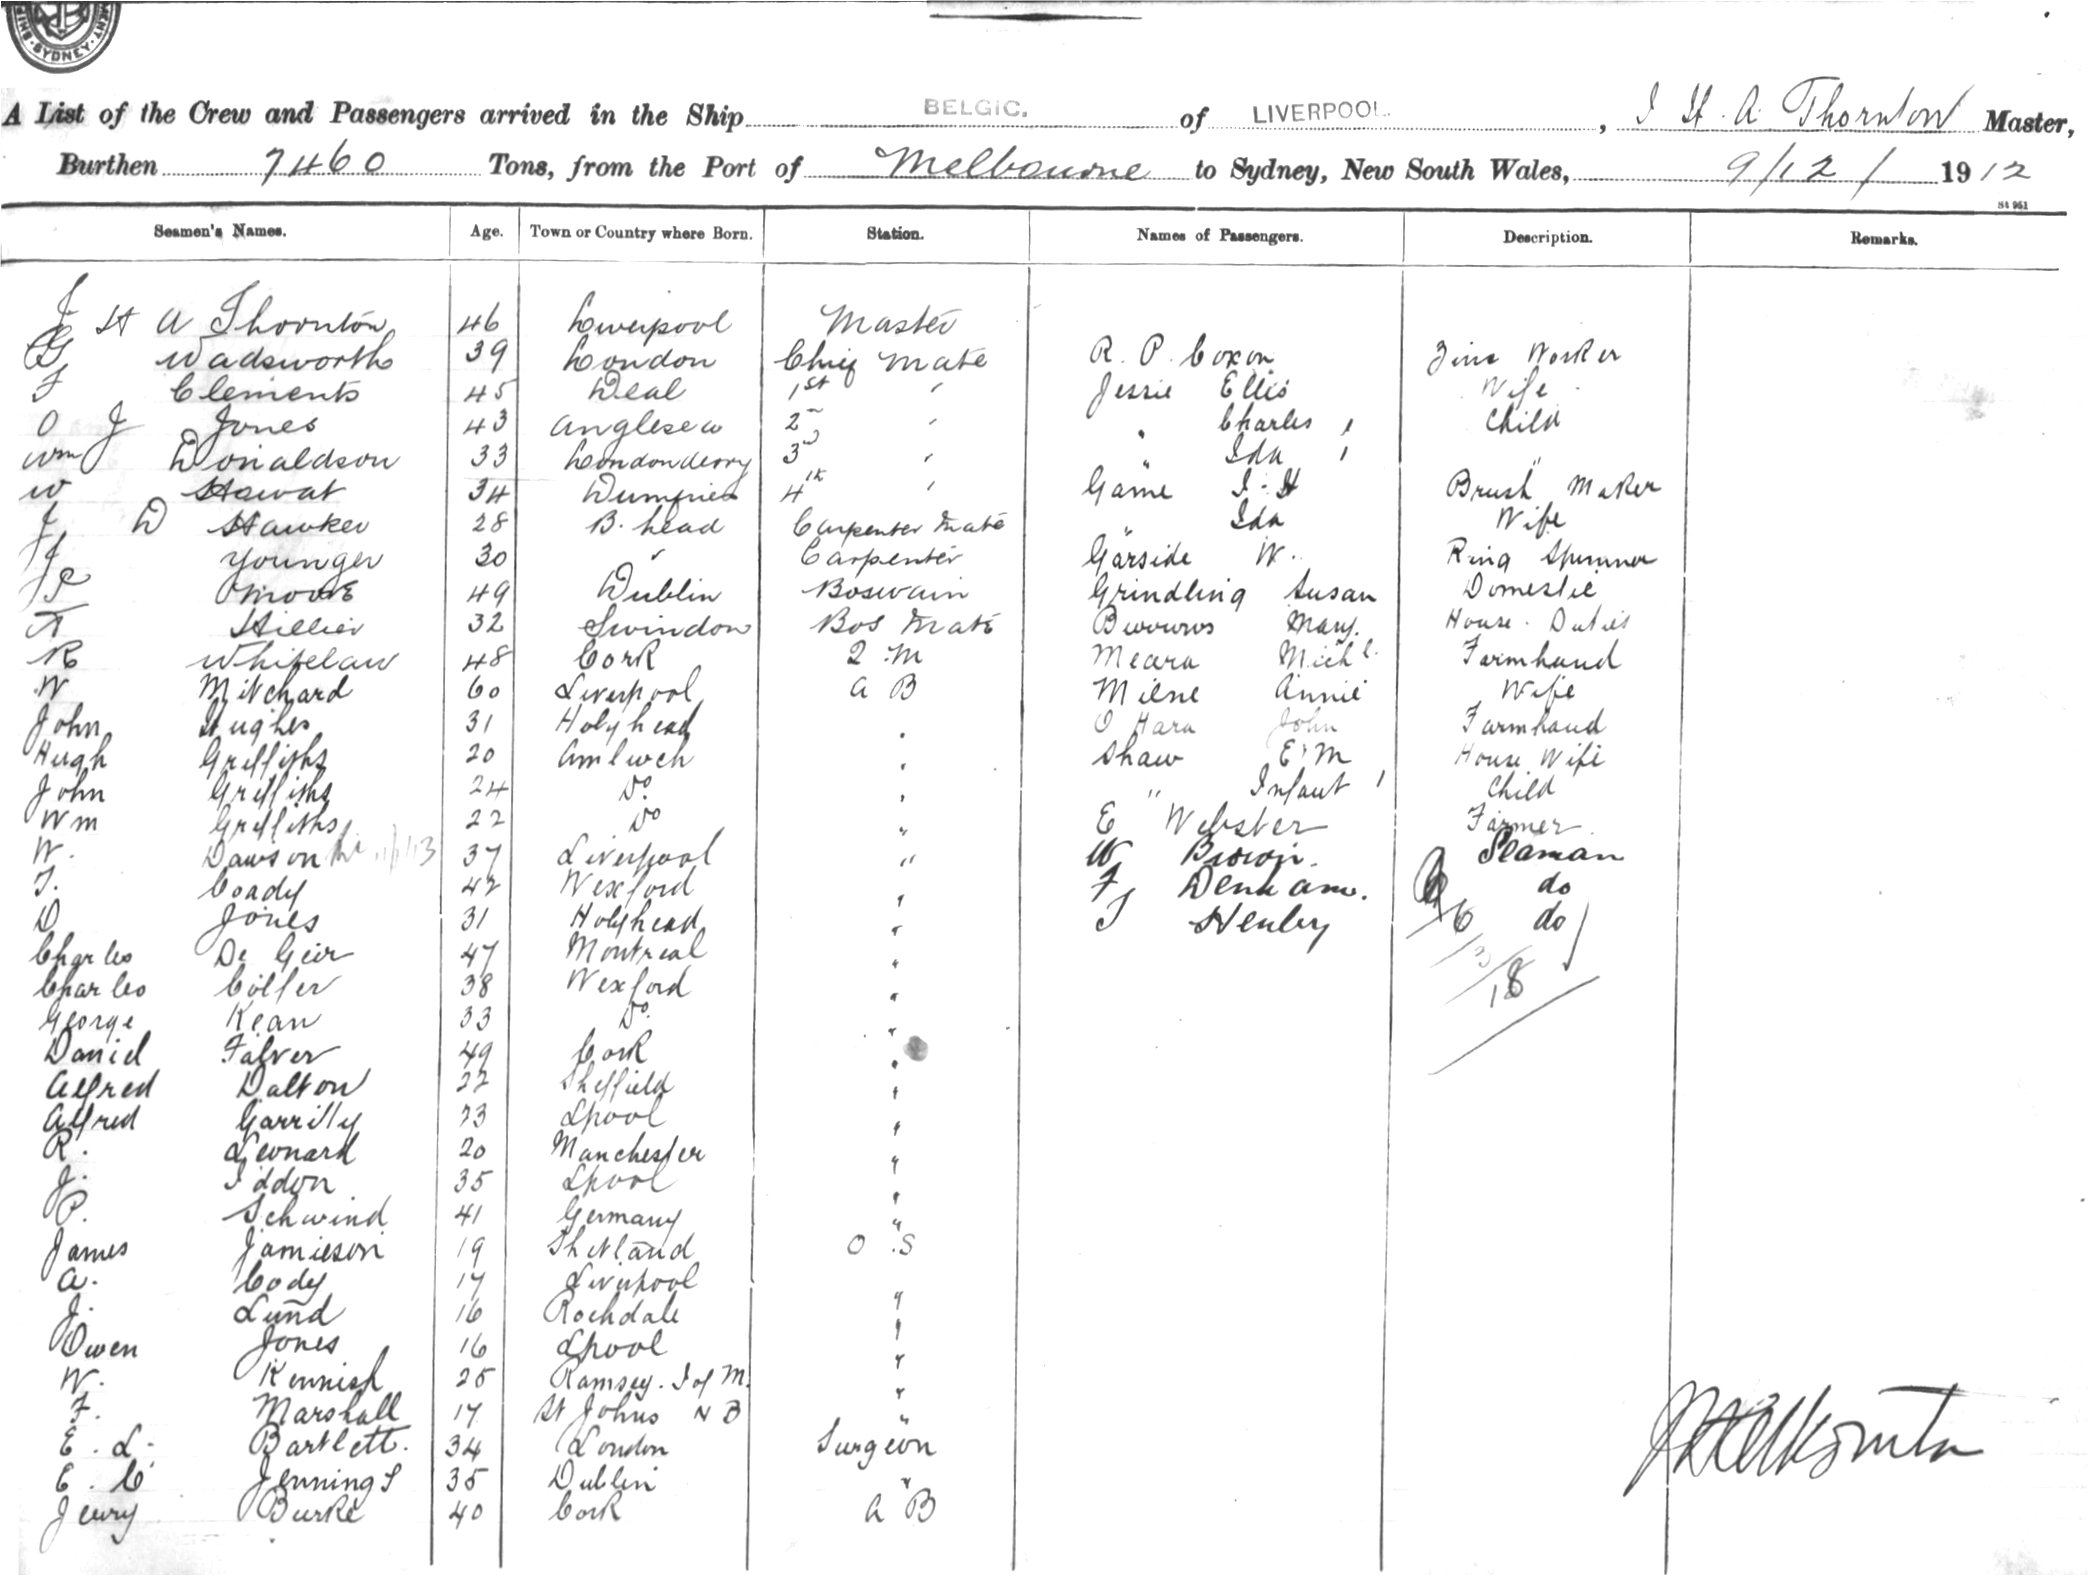 SYDNEY
A List of the Crew and Passengers arrived in the Ship BELGIC. of LIVERPOOL. , J H. A. Thornton Master,
Burthen 7460 Tons, from the Port of Melbourne to Sydney, New South Wales, 9/12/ 1912
St 951
Seamen's Names. Age. Town or Country where Born. Station. Names of Passengers. Description. Remarks.
J H A Thornton 46 Liverpool Master
G Wadsworth 39 London Chief Mate R. P. Coxon Zinc Worker
F Clements 45 Deal 1st " Jessie Ellis Wife
O J Jones 43 Anglesea 2nd " " Charles " Child
Wm J Donaldson 33 Londonderry 3rd " " Ida " "
W Howat 34 Dumfries 4th " Game J. H Brush Maker
J D Hawker 28 B. head Carpenter Mate " Ida Wife
J Younger 30 " Carpenter Garside W. Ring Spinner
P Moore 49 Dublin Boswain Grindling Susan Domestic
F Hillier 32 Swindon Bos Mate Burrows Mary. House Duties
R Whitelaw 48 Cork Q. M Meara Michl. Farmhand
W Mitchard 60 Liverpool A B Milne Annie Wife
John Hughes 31 Holyhead " O Hara John Farmhand
Hugh Griffiths 20 Amlwch " Shaw E. M House Wife
John Griffiths 24 Do " " Infant " Child
Wm Griffiths 22 Do " E Webster Farmer
W. Dawson 37 Liverpool " W Brown. Seaman
T. Coady 42 Wexford " F Denham. do
D Jones 31 Holyhead " T Henley 6 do
Charles De Geir 47 Montreal "
Charles Colfer 38 Wexford " 18
George Kean 33 Do "
Daniel Falver 49 Cork "
Alfred Dalton 22 Sheffield "
Alfred Garrilly 23 Lpool "
R. Leonard 20 Manchester "
J. Iddon 35 Lpool "
P. Schwind 41 Germany "
James Jamieson 19 Shetland O. S
A. Cody 17 Liverpool "
J. Lund 16 Rochdale "
Owen Jones 16 Lpool "
W. Kennish 25 Ramsey. I of M. "
F. Marshall 17 St Johns N B "
E. L. Bartlett. 34 London Surgeon
E. C. Jennings 35 Dublin "
Jerry Burke 40 Cork A B